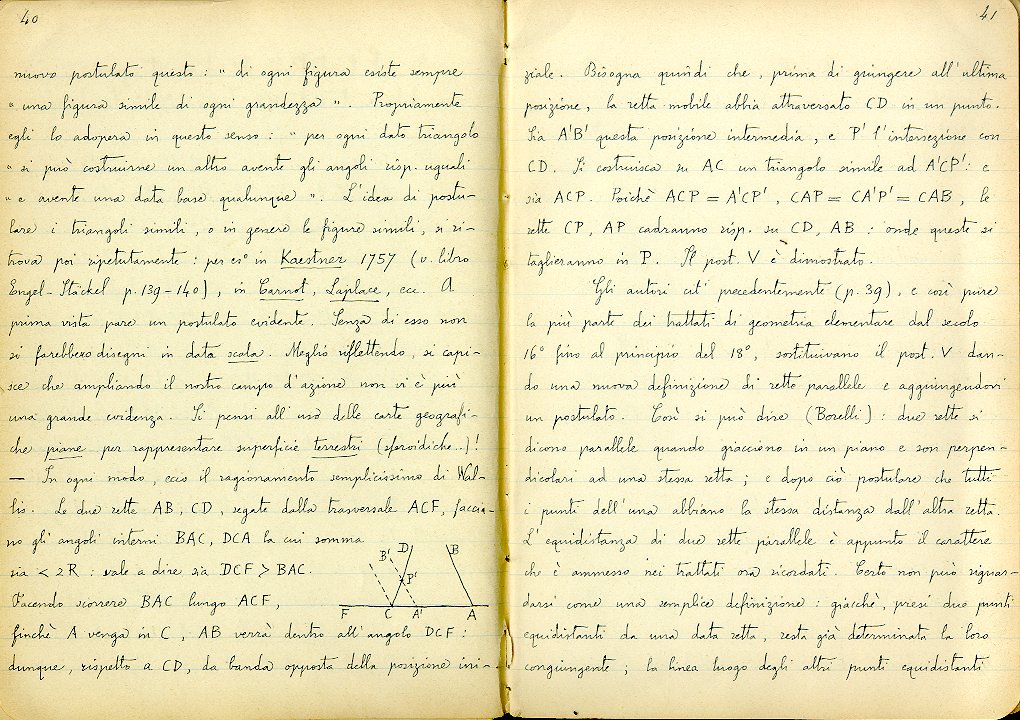 40
nuovo postulato questo : " di ogni figura esiste sempre
" una figura simile di ogni grandezza ". Propriamente
egli lo adopera in questo senso : " per ogni dato triangolo
" si può costruirne un altro avente gli angoli risp. uguali
" e avente una data base qualunque ". L'idea di postu-
lare i triangoli simili, o in genere le figure simili, si ri-
trova poi ripetutamente : per es° in Kaestner 1757 (v. libro
Engel-Stäckel p. 139-140), in Carnot, Laplace, ecc. A
prima vista pare un postulato evidente. Senza di esso non
si farebbero disegni in data scala. Meglio riflettendo, si capi-
sce che ampliando il nostro campo d'azione non vi è più
una grande evidenza. Si pensi all'uso delle carte geografi-
che piane per rappresentare superficie terrestri (sferoidiche..)!
— In ogni modo, ecco il ragionamento semplicissimo di Wal-
lis. Le due rette AB, CD, segate dalla trasversale ACF, faccia-
no gli angoli interni BAC, DCA la cui somma
sia < 2R : vale a dire sia DCF > BAC.
Facendo scorrere BAC lungo ACF,
finchè A venga in C, AB verrà dentro all'angolo DCF :
dunque, rispetto a CD, da banda opposta della posizione ini-
B' D B
P'
F C A' A
41
ziale. Bisogna quindi che, prima di giungere all'ultima
posizione, la retta mobile abbia attraversato CD in un punto.
Sia A'B' questa posizione intermedia, e P' l'intersezione con
CD. Si costruisca su AC un triangolo simile ad A'CP' : e
sia ACP. Poichè ACP = A'CP', CAP = CA'P' = CAB, le
rette CP, AP cadranno risp. su CD, AB : onde queste si
taglieranno in P. Il post. V è dimostrato.
Gli autori cit' precedentemente (p. 39), e così pure
la più parte dei trattati di geometria elementare dal secolo
16° fino al principio del 18°, sostituivano il post. V dan-
do una nuova definizione di rette parallele e aggiungendovi
un postulato. Così si può dire (Borelli) : due rette si
dicono parallele quando giacciono in un piano e son perpen-
dicolari ad una stessa retta ; e dopo ciò postulare che tutti
i punti dell'una abbiano la stessa distanza dall'altra retta.
L'equidistanza di due rette parallele è appunto il carattere
che è ammesso nei trattati ora ricordati. Certo non può riguar-
darsi come una semplice definizione : giacchè, presi due punti
equidistanti da una data retta, resta già determinata la loro
congiungente ; la linea luogo degli altri punti equidistanti